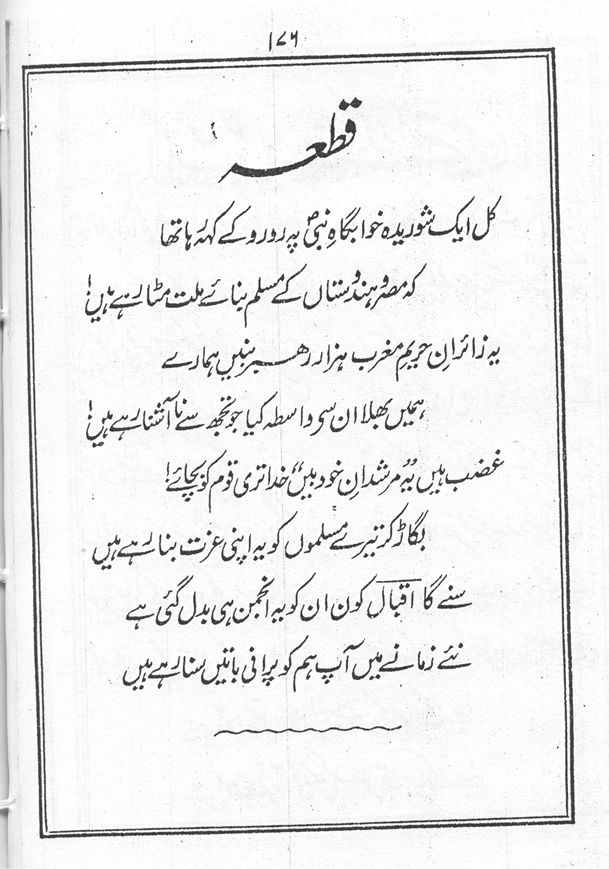 ۱۷۶
قطعہ
کل ایک شوریدہ خوابگاہِ نبیؐ پہ رو رو کے کہہ رہا تھا
کہ مصر و ہندوستاں کے مسلم بنائے ملت مٹا رہے ہیں!
یہ زائرانِ حریمِ مغرب ہزار رہبر بنیں ہمارے
ہمیں بھلا ان سے واسطہ کیا جو تجھ سے نا آشنا رہے ہیں!
غضب ہیں یہ ”مرشدانِ خود بیں“ خدا تری قوم کو بچائے!
بگاڑ کر تیرے مسلموں کو یہ اپنی عزت بنا رہے ہیں
سنے گا اقبالؔ کون ان کو یہ انجمن ہی بدل گئی ہے
نئے زمانے میں آپ ہم کو پرانی باتیں سنا رہے ہیں